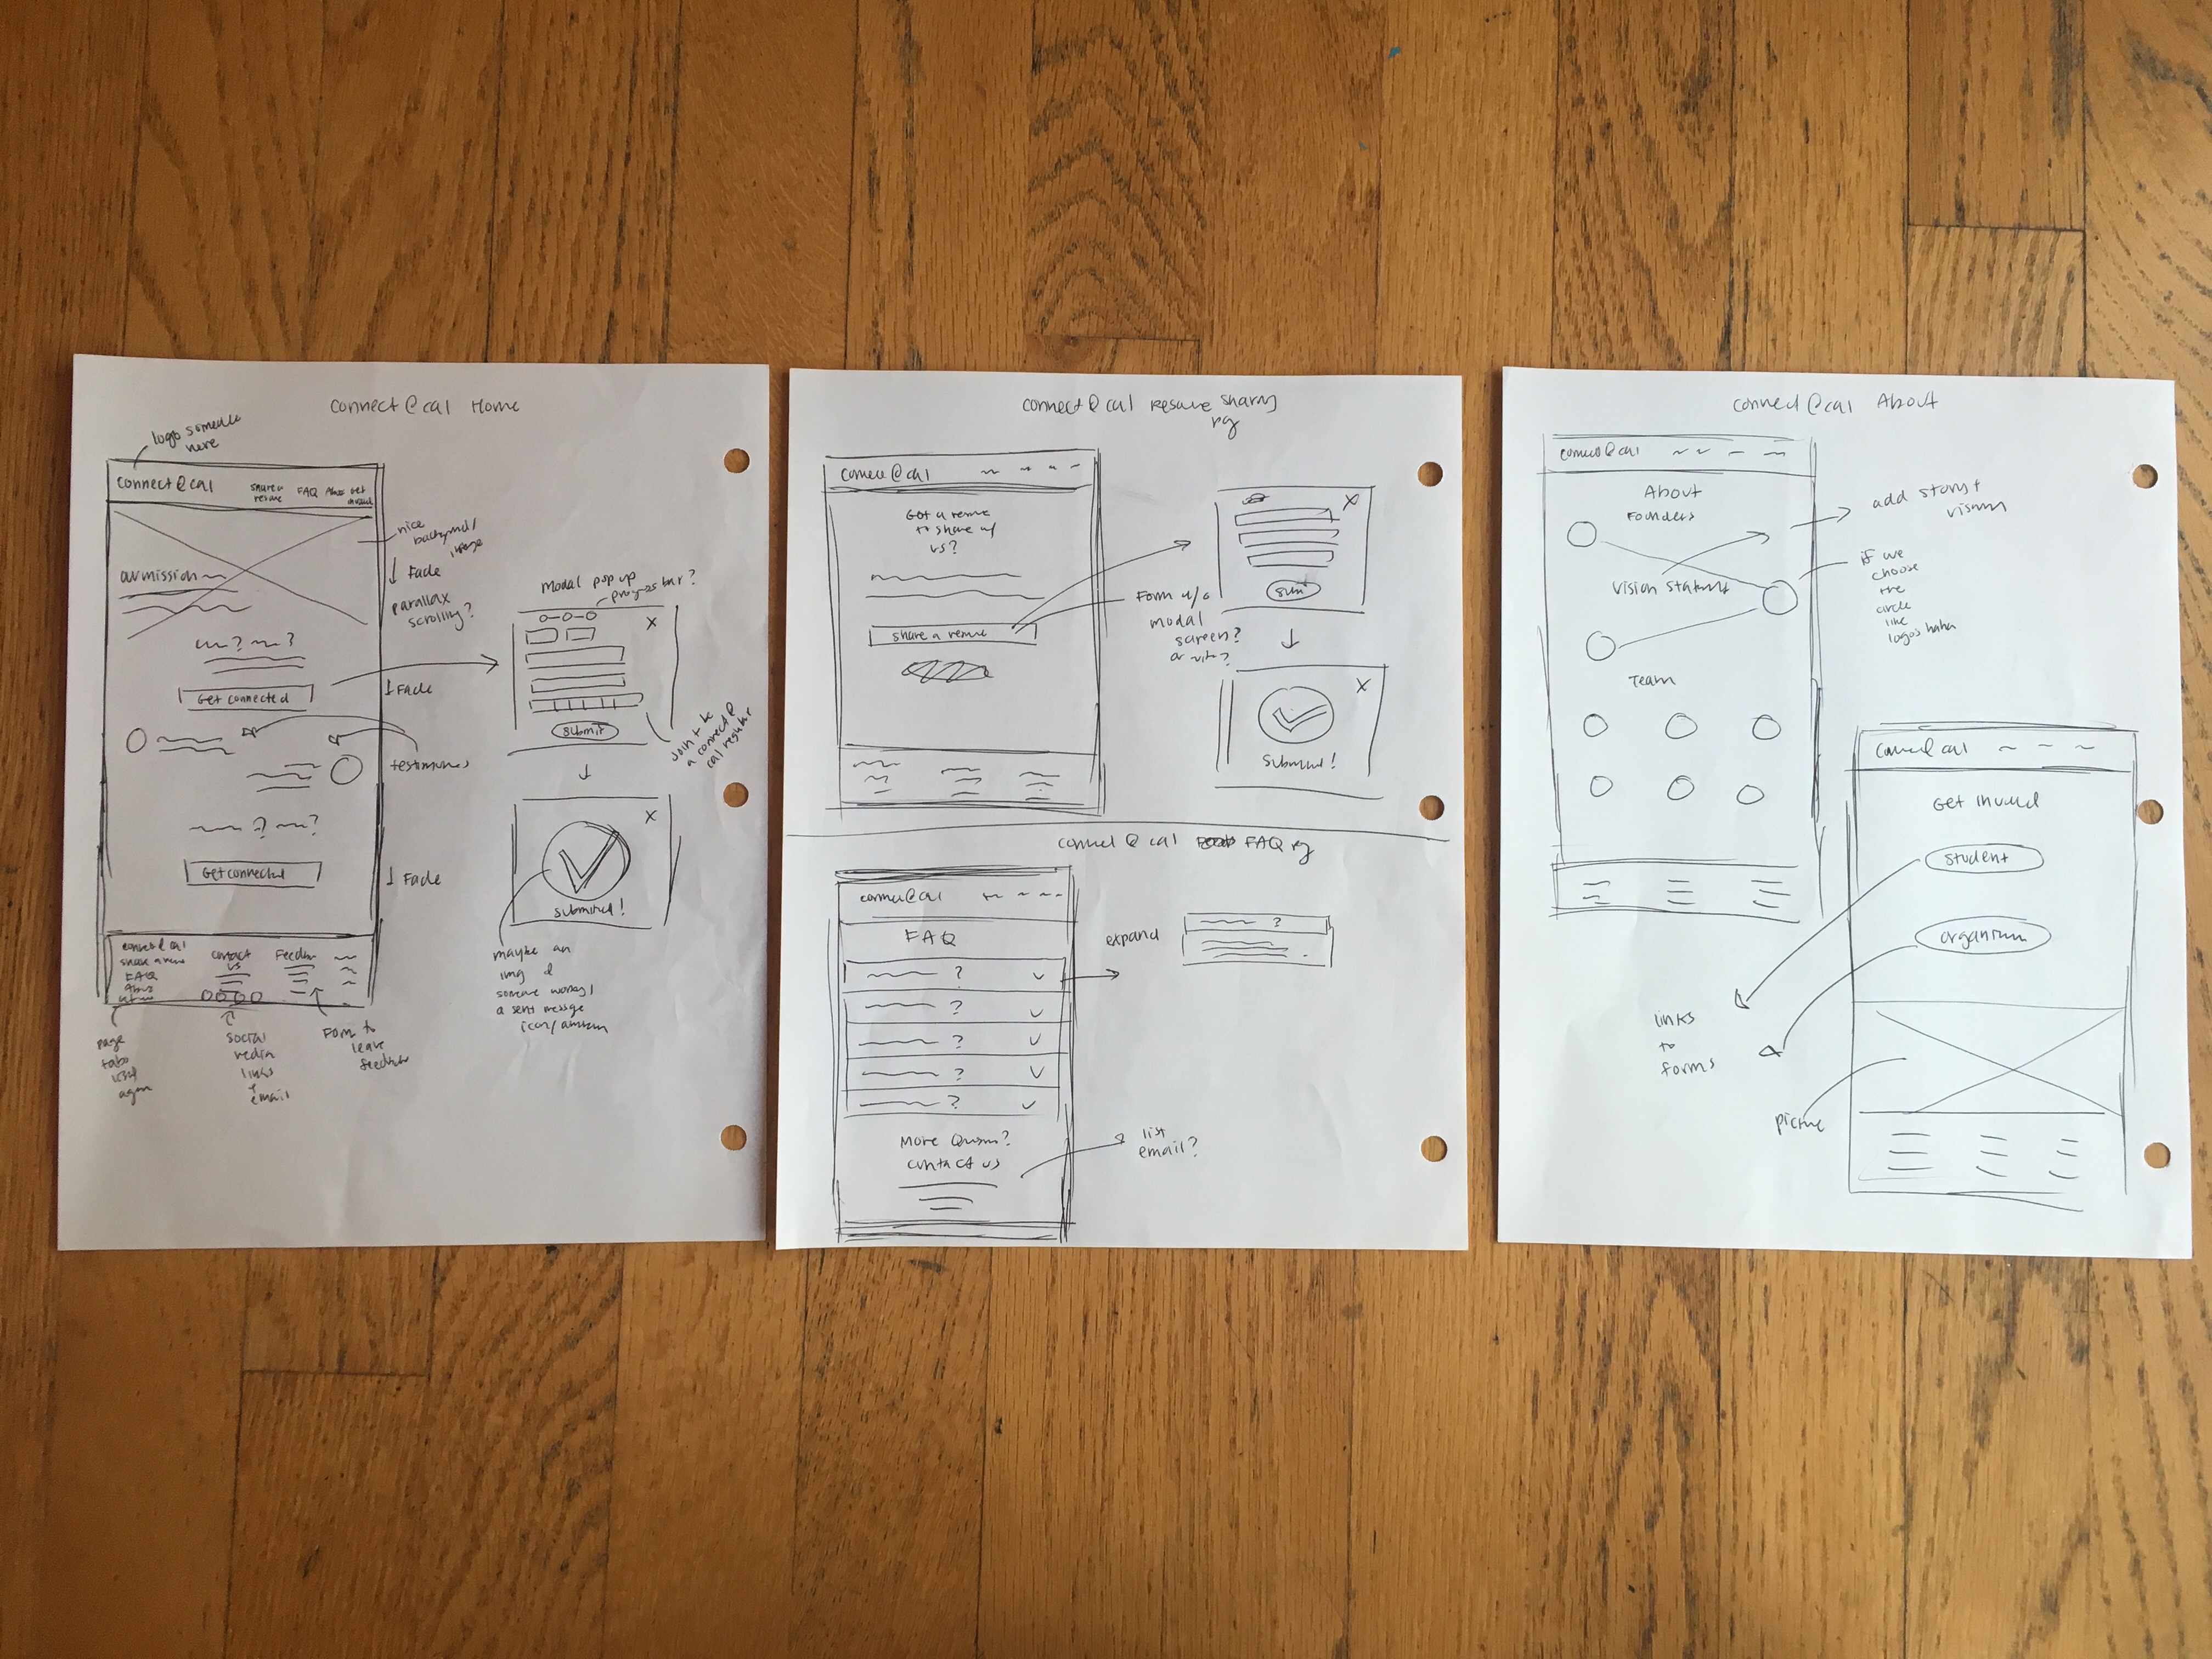 connect@cal Home
logo somewhere
here
connect@cal
share a
resume
FAQ
About
Get
involved
nice
background/
image
↓ Fade
our mission
parallax
scrolling?
? ?
Get connected
↓ Fade
testimonies
? ?
Get connected
↓ Fade
connect@cal
share a resume
FAQ
About
contact
us
Feedback
page
tabs
again
social
media
links
+
email
Form to
leave
feedback
modal pop up
progress bar?
X
submit
join to be
a connect@
cal regular
X
submitted!
maybe an
img of
someone working/
a sent message
icon/
connect@cal resume sharing
pg
connect@cal
Got a resume
to share w/
us?
share a resume
Form w/o
modal
screen?
or with?
X
X
submitted!
connect@cal FAQ pg
connect@cal
FAQ
?
?
?
?
?
expand
?
More Questions?
contact us
list
email?
connect@cal About
connect@cal
About
Founders
add story +
vision
vision statement
if we
choose
the
circle
like
logos haha
Team
connect@cal
Get involved
student
organization
links
to
forms
picture